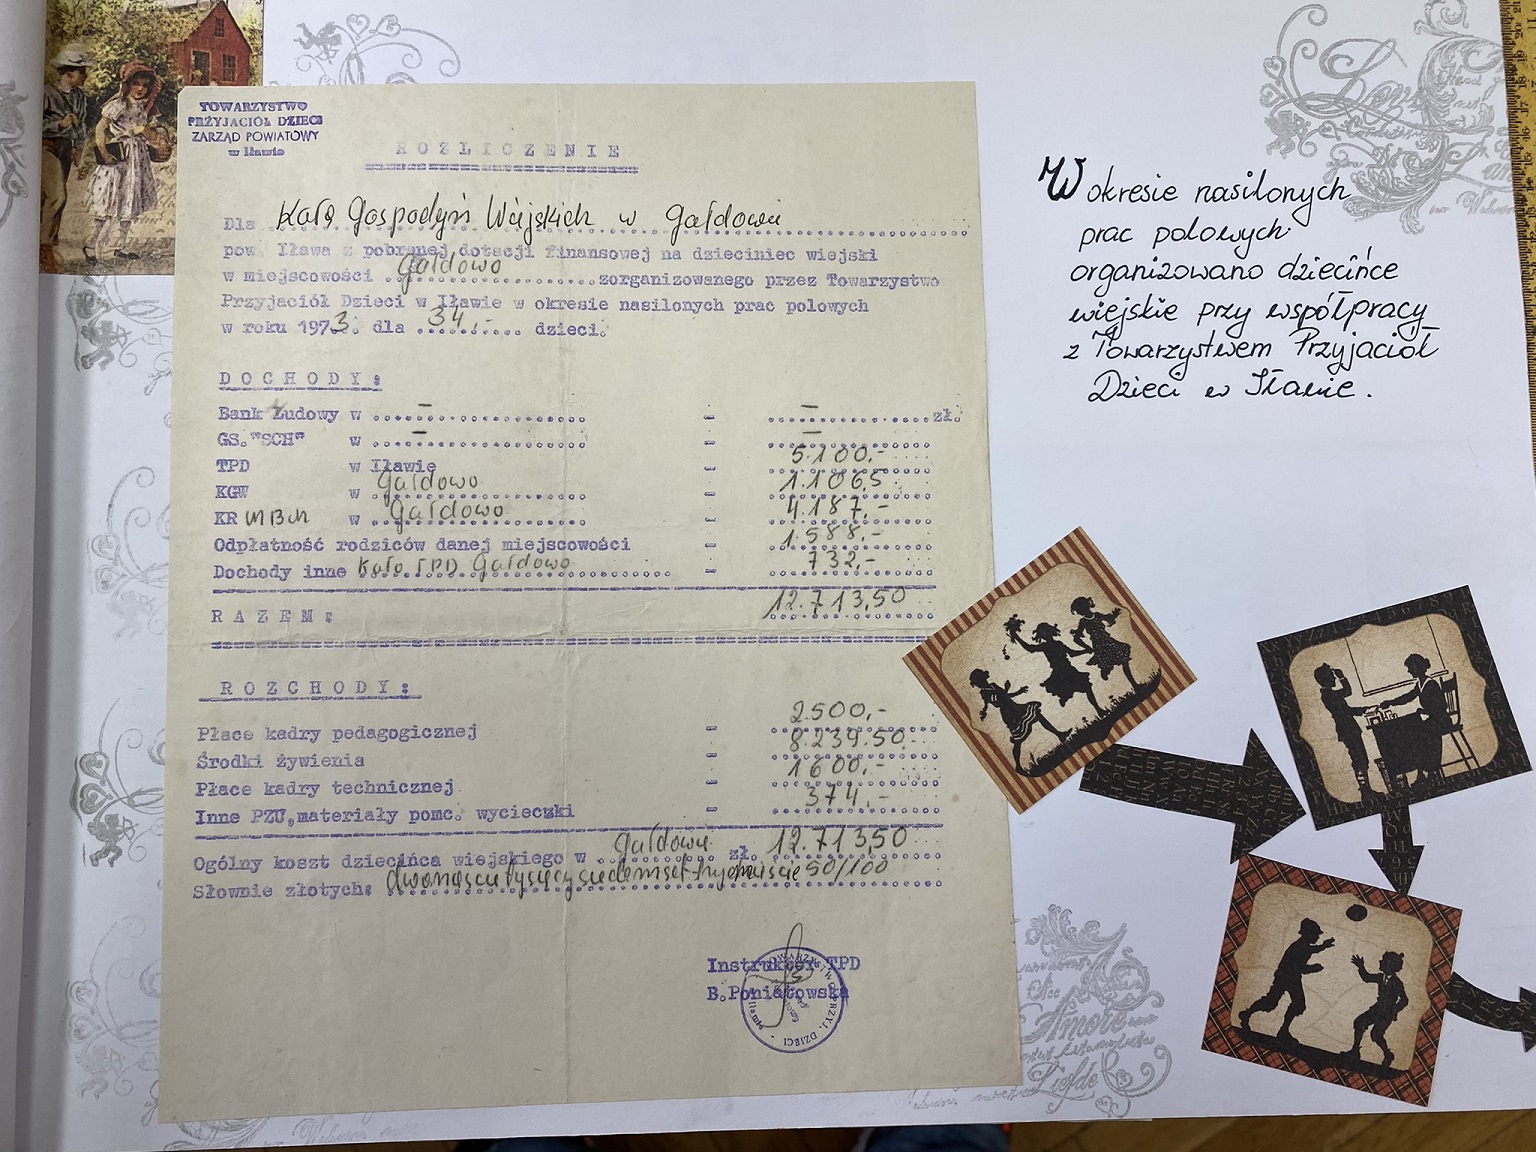 TOWARZYSTWO
PRZYJACIÓŁ DZIECI
ZARZĄD POWIATOWY
w Iławie
ROZLICZENIE
Dla Koła Gospodyń Wiejskich w Gałdowie
pow. Iława z pobranej dotacji finansowej na dzieciniec wiejski
w miejscowości Gałdowo zorganizowanego przez Towarzystwo
Przyjaciół Dzieci w Iławie w okresie nasilonych prac polowych
w roku 1973. dla 34.- dzieci.
DOCHODY:
Bank Ludowy w - - - zł.
GS."SCH" w - - -
TPD w Iławie - 5.100,-
KGW w Gałdowo - 1.106,5
KR w Gałdowo - 4.187,-
Odpłatność rodziców danej miejscowości - 1.588,-
Dochody inne Koło TPD Gałdowo - 732,-
RAZEM: 12.713,50
ROZCHODY:
Płace kadry pedagogicznej - 2500,-
Środki żywienia - 8.239.50.-
Płace kadry technicznej - 1600,-
Inne PZU,materiały pomc. wycieczki - 374,-
Ogólny koszt dziecińca wiejskiego w Gałdowie zł. 12.713,50
Słownie złotych: dwanaście tysięcy siedemset trzynaście 50/100
Instruktor TPD
B.Poniatowska
W okresie nasilonych
prac polowych
organizowano dziecińce
wiejskie przy współpracy
z Towarzystwem Przyjaciół
Dzieci w Iławie.